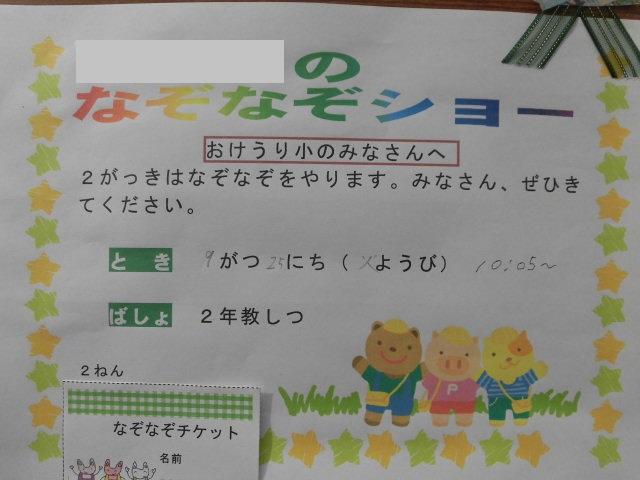 の
なぞなぞショー
おけうり小のみなさんへ
２がっきはなぞなぞをやります。みなさん、ぜひき
てください。
とき 9がつ25にち（火ようび） 10:05～
ばしょ ２年教しつ
２ねん
P
なぞなぞチケット
名前